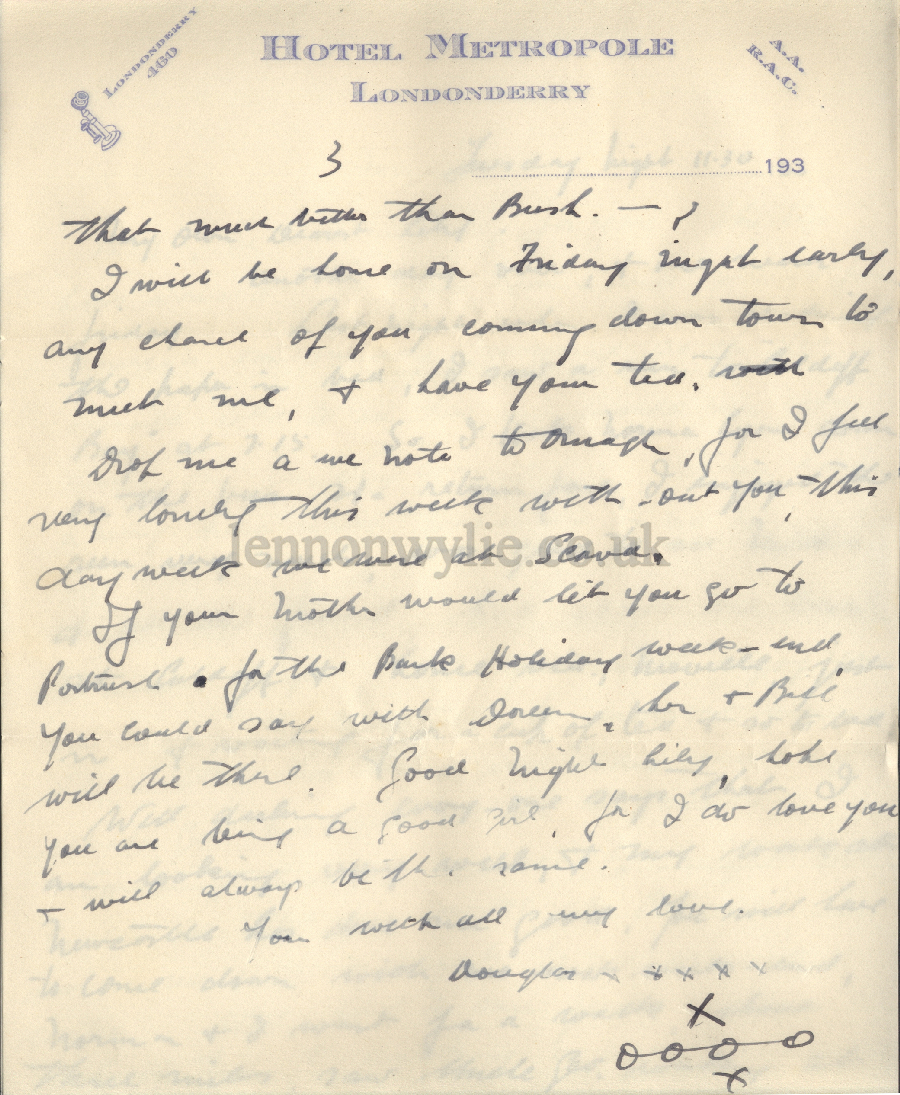 LONDONDERRY
469
HOTEL METROPOLE
LONDONDERRY
A.A.
R.A.C.
3
193
that much better than Bush. —
I will be home on Friday night early,
any chance of you coming down town to
meet me, + have your tea.
Drop me a wee note to Omagh, for I feel
very lonely this week with-out you, this
day week we were at Scava.
lennonwylie.co.uk
If your Mother would let you go to
Portrush. for the Bank Holiday week-end,
you could say with Doreen, her + Bill
will be there. Good Night Lily, hope
you are being a good girl, for I do love you
+ will always be the same.
Your with all my love.
Douglas x x x x x
x
o o o o
x